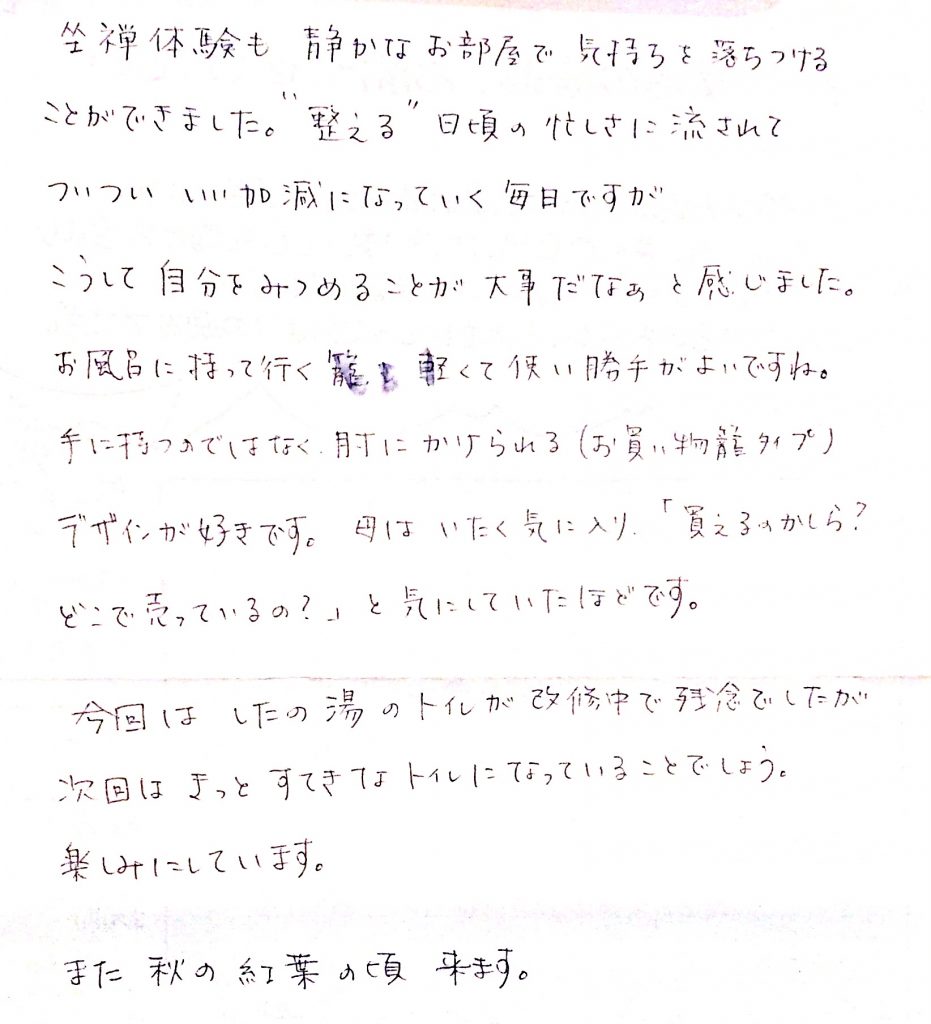 坐禅体験も 静かなお部屋で 気持ちを 落ちつける
ことができました。"整える" 日頃の 忙しさに 流されて
ついつい いい加減になっていく 毎日ですが
こうして 自分をみつめることが 大事だなぁ と 感じました。
お風呂に 持って行く 籠も 軽くて 使い勝手がよいですね。
手に持つのではなく、肘に かけられる (お買い物籠タイプ)
デザインが好きです。 母は いたく 気に入り、「買えるのかしら?
どこで 売っているの?」と 気にしていたほどです。
今回は したの湯のトイレが 改修中で 残念でしたが
次回は きっと すてきな トイレになっていることでしょう。
楽しみにしています。
また 秋の 紅葉の頃 来ます。